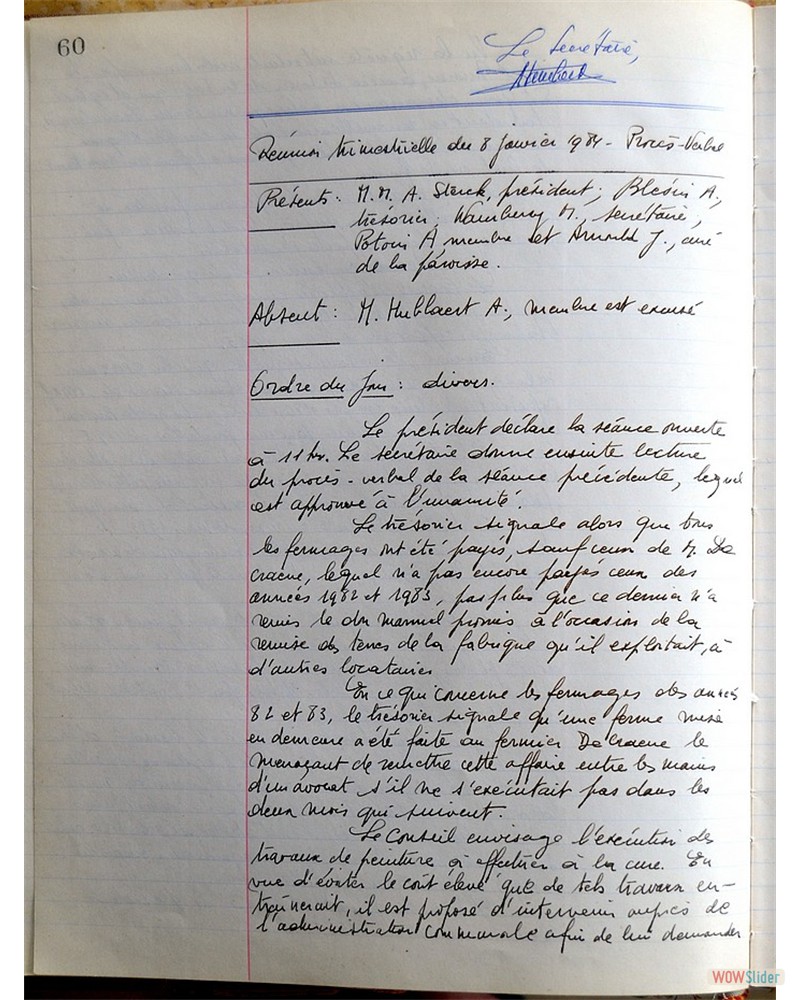 60
Le Secrétaire,
Réunion trimestrielle du 8 janvier 1984 - Procès-Verbal
Présents : M.M. A. Sterck, président ; Blésin A.,
trésorier ; M., secrétaire ;
A membre et Arnould J., curé
de la paroisse.
Absent : M. Hublaert A., membre est excusé
Ordre du Jour : divers.
Le président déclare la séance ouverte
à 11 hr. Le secrétaire donne ensuite lecture
du procès-verbal de la séance précédente, lequel
est approuvé à l'unanimité.
Le trésorier signale alors que tous
les fermages ont été payés, sauf ceux de M. De
cracne, lequel n'a pas encore payés ceux des
années 1982 et 1983, pas plus que ce dernier n'a
remis le don manuel promis à l'occasion de la
remise des terres de la fabrique qu'il exploitait, à
d'autres locataires
En ce qui concerne les fermages des années
82 et 83, le trésorier signale qu'une ferme mise
en demeure a été faite au fermier De Cracne le
menaçant de remettre cette affaire entre les mains
d'un avocat s'il ne s'exécutait pas dans les
deux mois qui suivent.
Le Conseil envisage l'exécution des
travaux de peinture à effectuer à la cure. En
vue d'éviter le coût élevé que de tels travaux en-
traînerait, il est proposé d'intervenir auprès de
l'administration communale afin de lui demander
WOWSlider